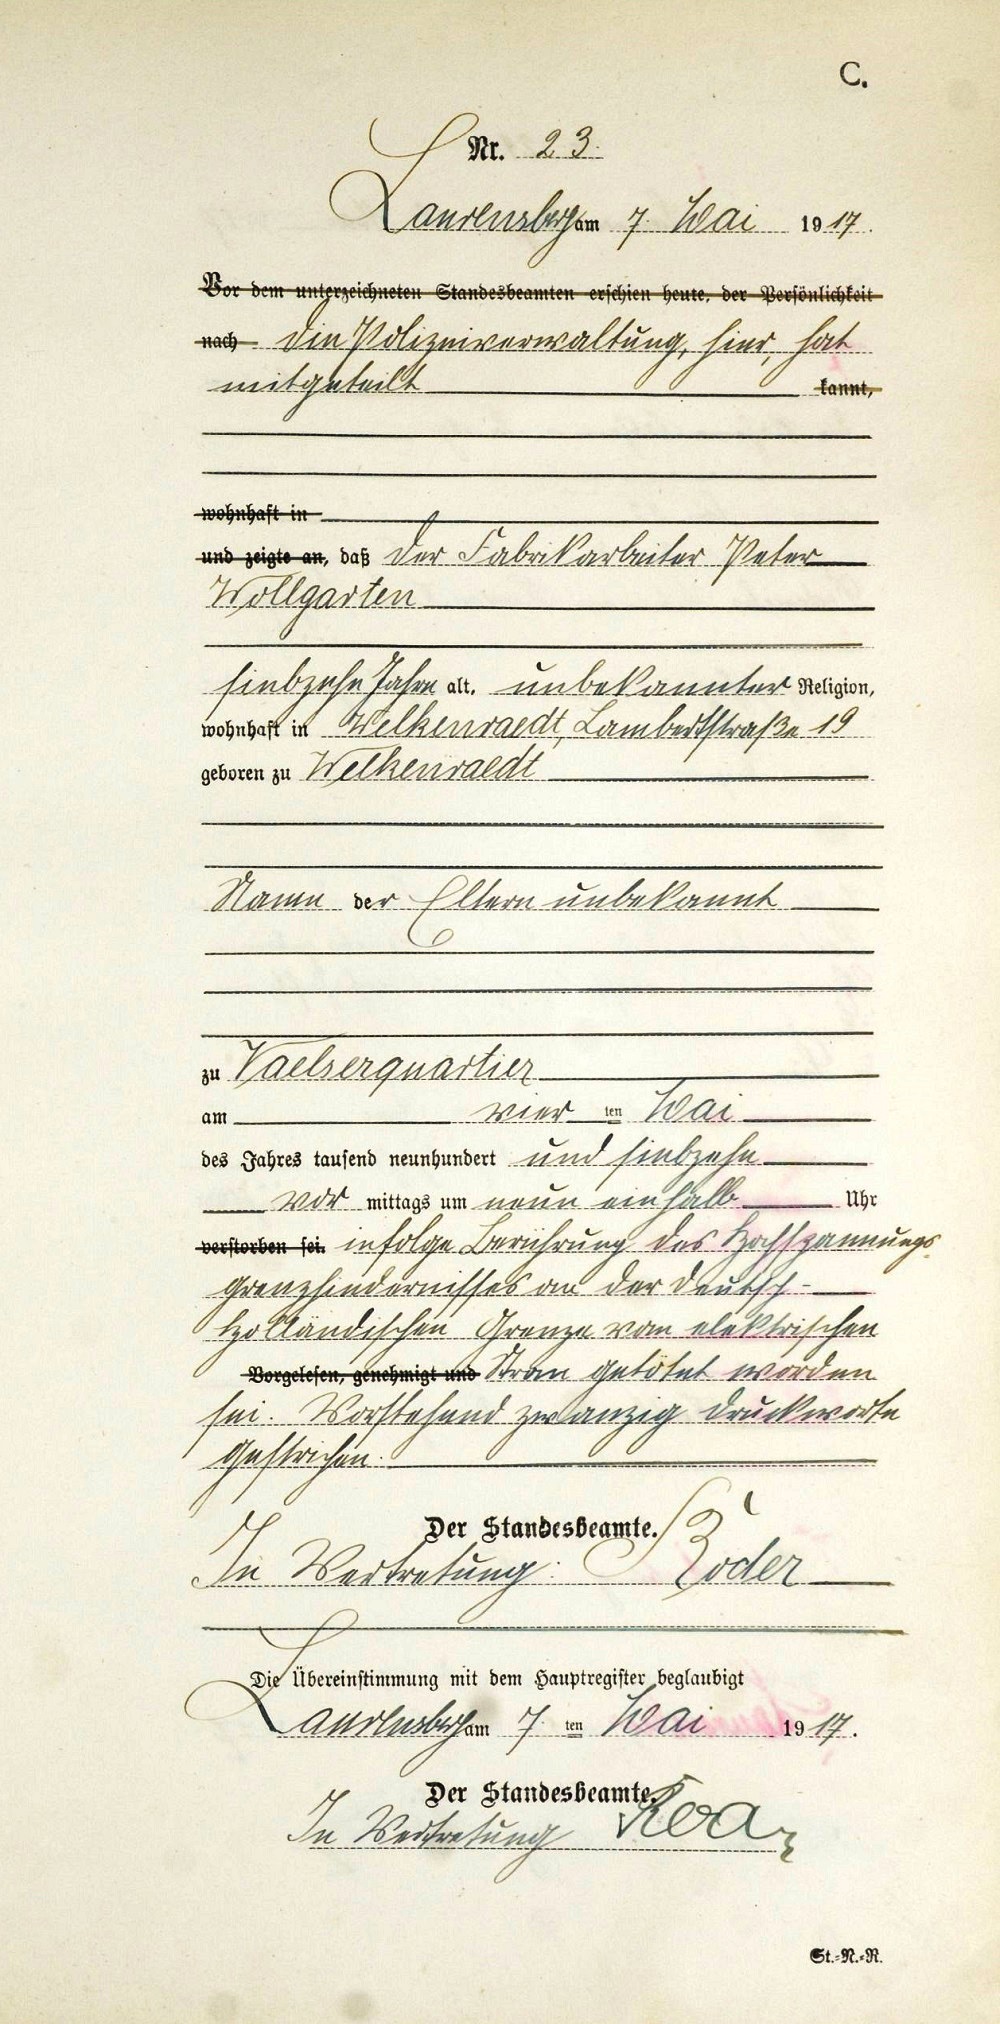 C.
Nr. 23.
Laurensberg am 7. Mai 1917.
Vor dem unterzeichneten Standesbeamten erschien heute, der Persönlichkeit
nach die Polizeiverwaltung, hier, hat
mitgeteilt kannt,
wohnhaft in
und zeigte an, daß der Fabrikarbeiter Peter
Wollgarten
siebzehn Jahre alt, unbekannter Religion,
wohnhaft in Welkenraedt, Lambertstraße 19
geboren zu Welkenraedt
Namen der Eltern unbekannt
zu Vaelserquartier
am vier ten Mai
des Jahres tausend neunhundert und siebzehn
vor mittags um neun einhalb Uhr
verstorben sei. infolge Berührung des Hochspannungs-
grenzhindernisses an der deutsch-
holländischen Grenze vom elektrischen
Vorgelesen, genehmigt und Strom getötet worden
sei. Vorstehend zwanzig Druckworte
gestrichen.
Der Standesbeamte.
In Vertretung: Koder
Die Übereinstimmung mit dem Hauptregister beglaubigt
Laurensberg am 7. ten Mai 1917.
Der Standesbeamte.
In Vertretung
St.-N.-R.